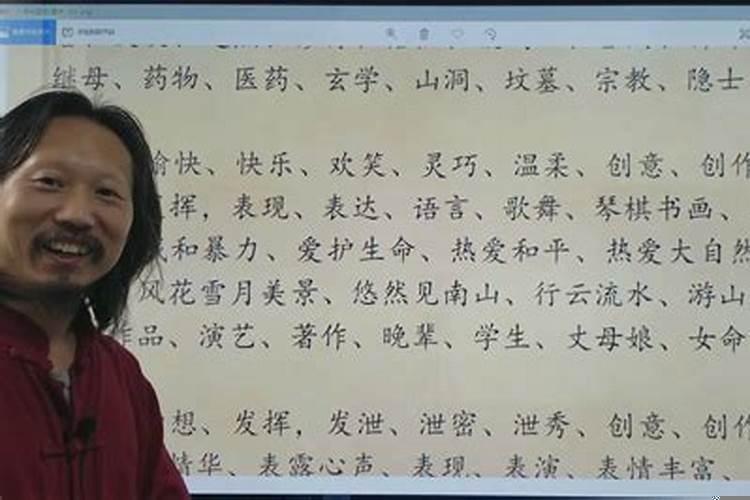 继母、药物、医药、玄学、山洞、坟墓、宗教、隐士
愉快、快乐、欢笑、灵巧、温柔、创意、创作
挥，表现、表达、语言、歌舞、琴棋书画、
和暴力、爱护生命、热爱和平、热爱大自然
风花雪月美景、悠然见南山、行云流水、游山
作品、演艺、著作、晚辈、学生、丈母娘、女命
想、发挥，发泄、泄密、泄秀、创意、创作
情华、表露心声、表现、表演、表情丰富、